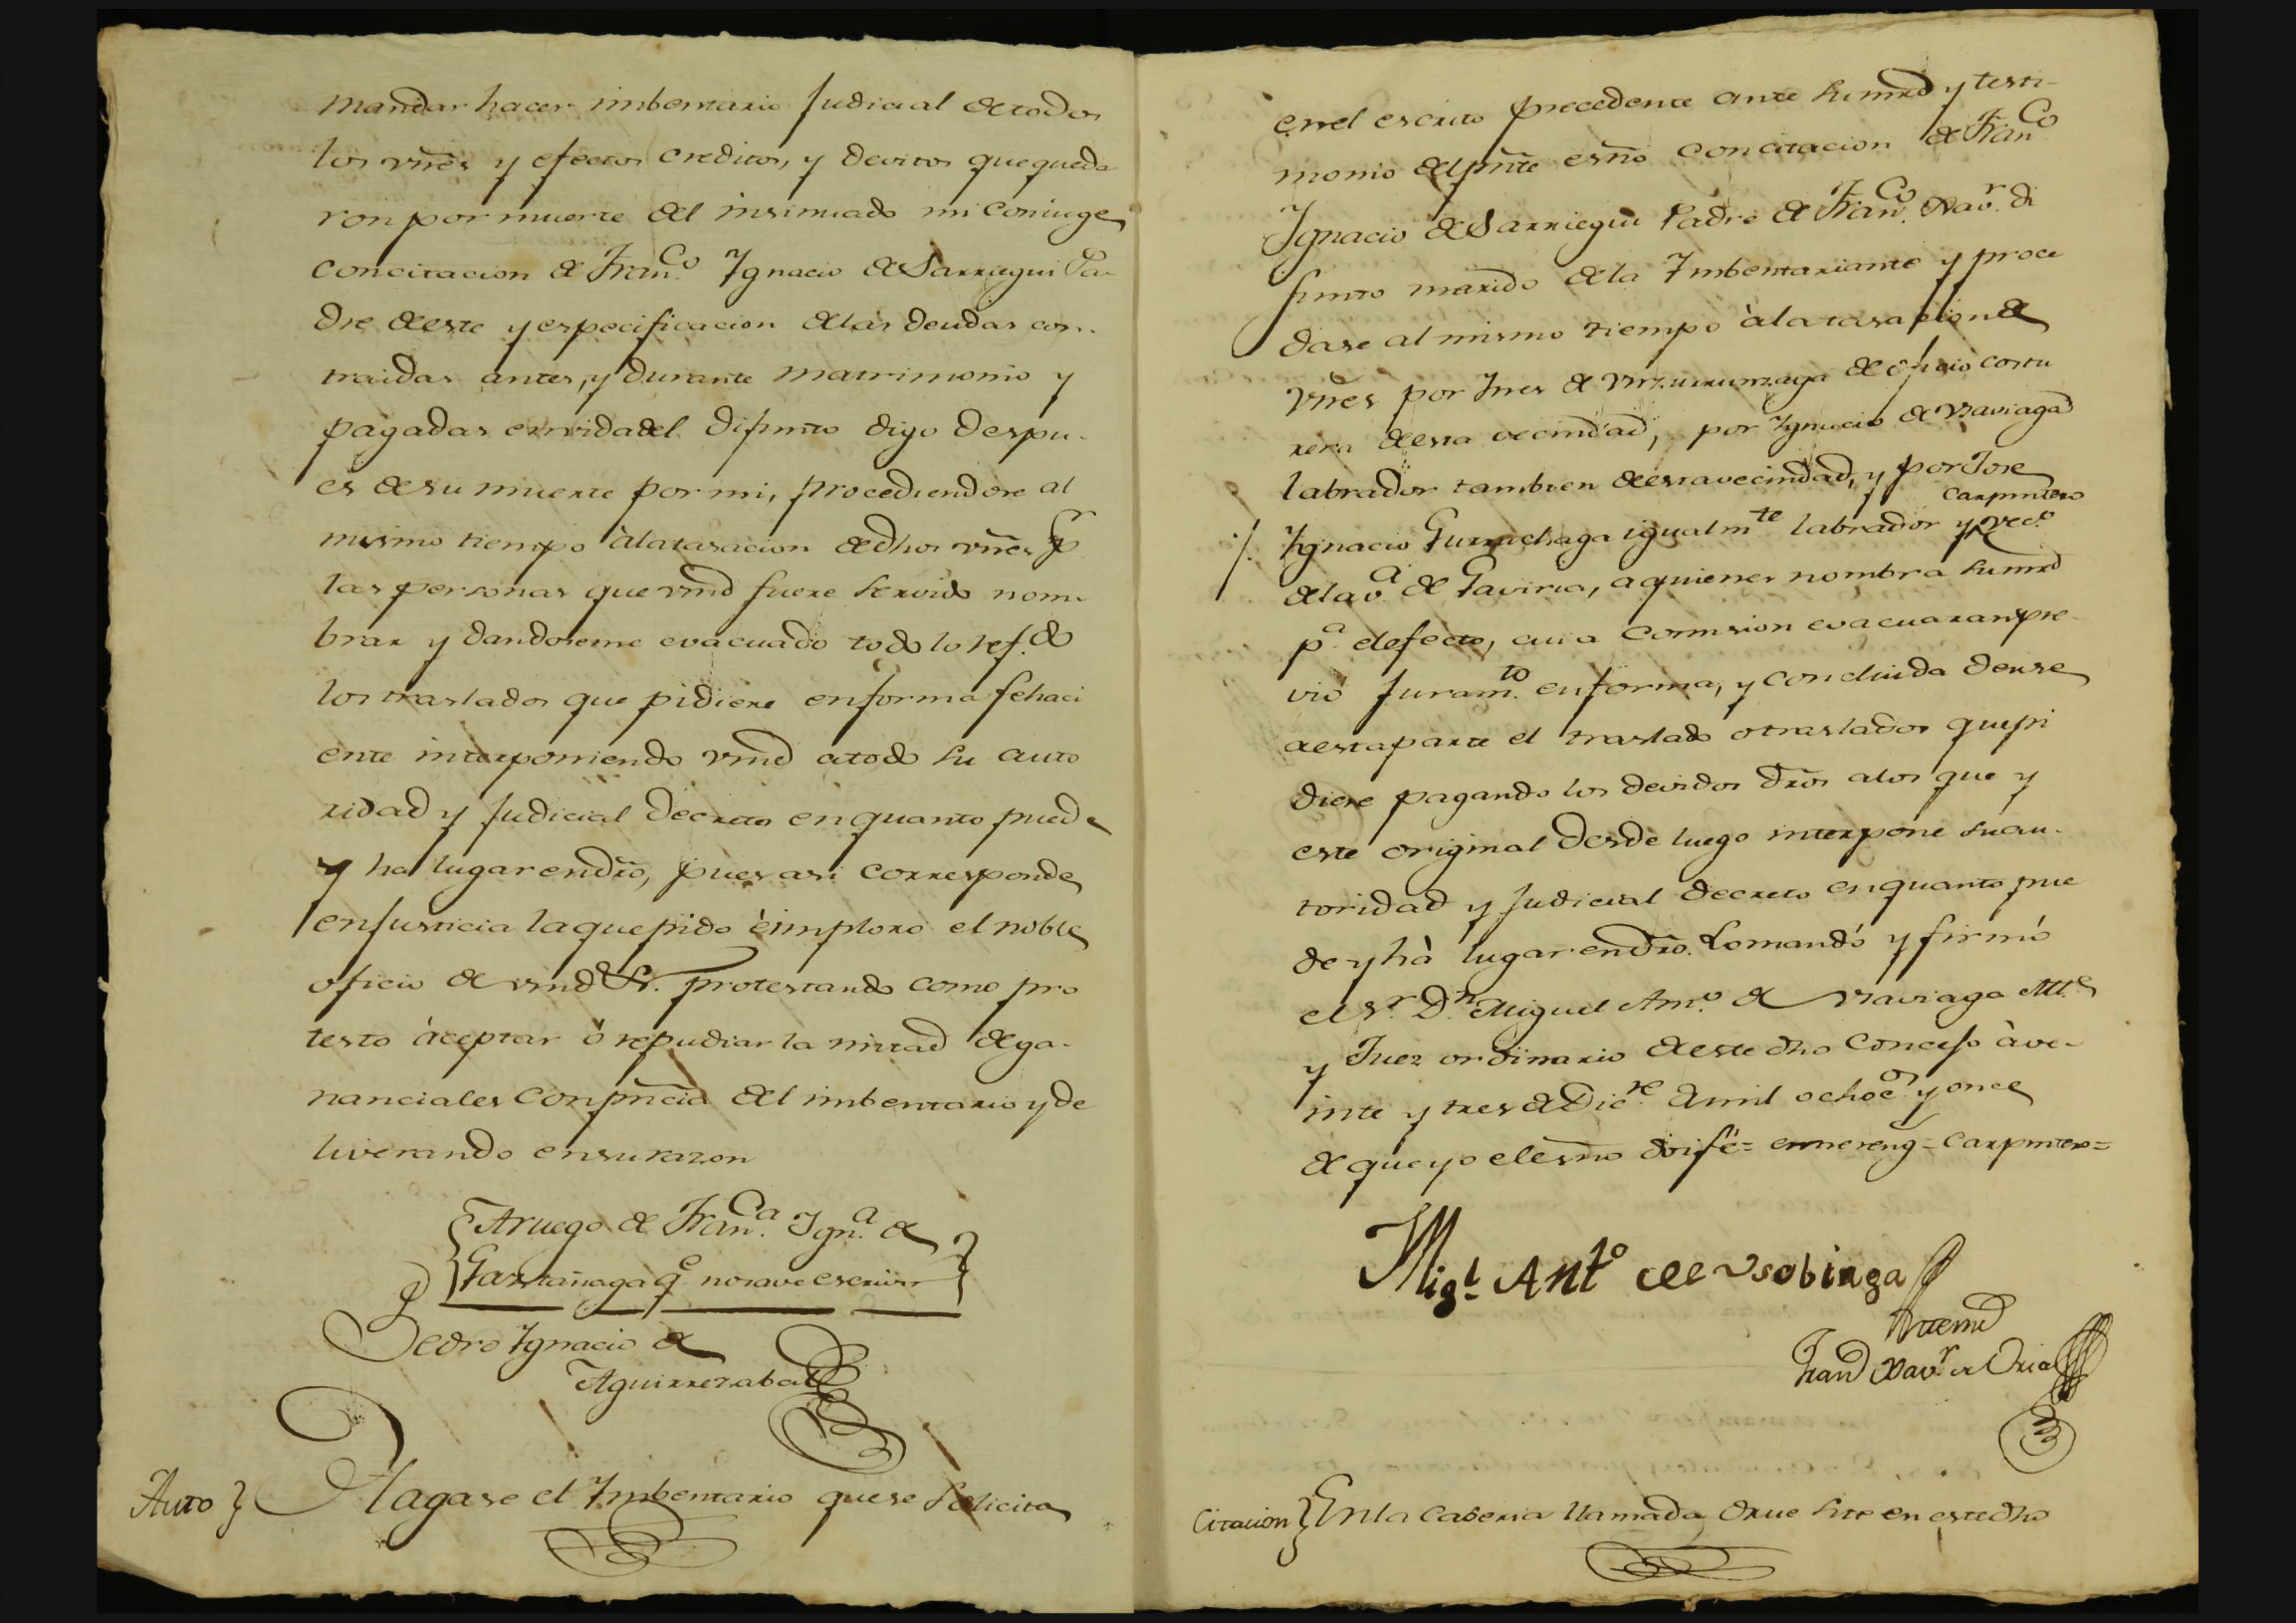 mandar hacer imbentario Judicial de todos
los vñes y efectos creditos, y devitos que queda
ron por muerte del insinuado mi coniuge
con citacion de Fran.co Ygnacio de Sarriegui Pa-
dre de este y especificacion de las deudas con-
traidas antes, y durante matrimonio y
pagadas en vida del difunto digo despu-
es de su muerte por mi, procediendose al
mismo tiempo à la tasacion de dhos vñes pr
las personas que vmd fuere servido nom-
brar y dandoseme evacuado todo lo ref.do
los traslados que pidiere en forma fehaci
ente interponiendo vmd a todo su auto
ridad y Judicial Decreto en quanto puede
y ha lugar en dro, pues asi corresponde
en Justicia la que pido è imploro el noble
oficio de vmd Sr. protestando como pro
testo àceptar ò repudiar la mitad de ga-
nanciales con pñcia del imbentario y de
liverando en su razon
A ruego de Fran.ca Ygn.a de
Garitañaga q.e no save escrivir
Pedro Ygnacio de
Aguirrezabal
Auto } Hagase el Ymbentario que se solicita
en el escrito precedente ante su mrd y testi-
monio del pñte esño con citacion de Fran.co
Ygnacio de Sarriegui Padre de Fran.co Xav.r di
funto marido de la Ymbentariante y proce
dase al mismo tiempo à la tasacion de
vñes por Ynes de Vnzurrunzaga de oficio costu
rera de esta vecindad, por Ygnacio de Vzaviaga
labrador tambien de esta vecindad, y por Jose
carpintero
Ygnacio Gurruchaga igualm.te labrador y vec.o
de la v.a de Gaviria, a quienes nombra su mrd
p.a el efecto, cuia comision evacuaran pre-
vio Juram.to en forma, y concluida dense
a esta parte el traslado o traslados que pi
diere pagando los devidos dros a los que y
este original desde luego interpone su au-
toridad y Judicial decreto en quanto pue
de y hà lugar en dro. Lo mandó y firmó
el S.r D.n Miguel Ant.o de Vzaviaga Alt.e
y Juez ordinario de este dho Concejo à ve-
inte y tres de Dic.re de mil ochoc.s y once
de que yo el esño doi fé= entrereng = carpintero=
Mig.l Ant.o de Vsobiaga
Antemi
Fran.co Xav.r de Oria
Citacion } En la Caseria llamada Orue site en este dho